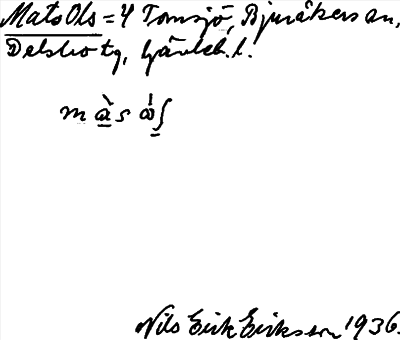 Mats Ols = 4 Tomsjö, Bjuråkers sn,
Delsbo tg, Gävleb. l.
Nils Erik Eriksson 1936.